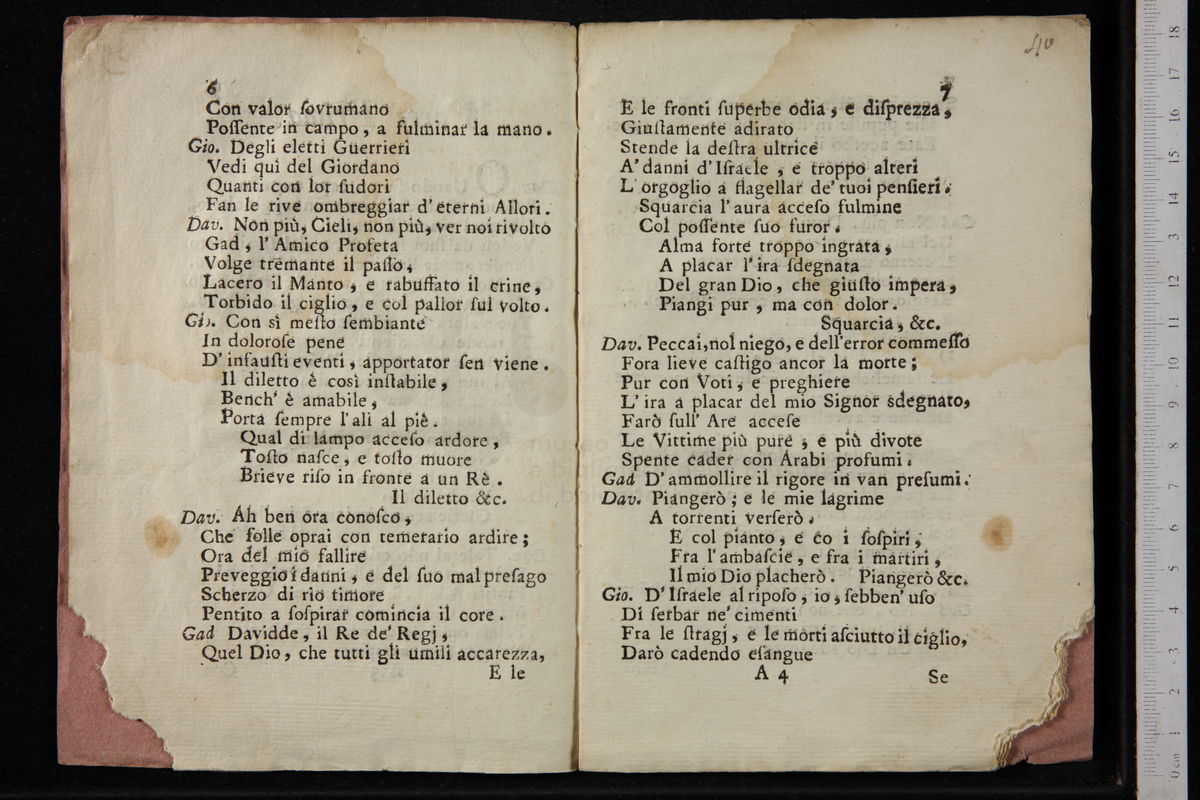 6
Con valor ſovrumano
Poſſente in campo, a fulminar la mano.
Gio. Degli eletti Guerrieri
Vedi quì del Giordano
Quanti con lor ſudori
Fan le rive ombreggiar d'eterni Allori.
Dav. Non più, Cieli, non più, ver noi rivolto
Gad, l'Amico Profeta
Volge tremante il paſſo,
Lacero il Manto, e rabuffato il crine,
Torbido il ciglio, e col pallor ſul volto.
Gio. Con sì meſto ſembiante
In doloroſe pene
D'infauſti eventi, apportator ſen viene.
Il diletto è così inſtabile,
Bench' è amabile,
Porta ſempre l'ali al piè.
Qual di lampo acceſo ardore,
Toſto naſce, e toſto muore
Brieve riſo in fronte a un Rè.
Il diletto &c.
Dav. Ah ben ora conoſco,
Che folle oprai con temerario ardire;
Ora del mio fallire
Preveggio i danni, e del ſuo mal preſago
Scherzo di rio timore
Pentito a ſoſpirar comincia il core.
Gad Davidde, il Re de' Regj,
Quel Dio, che tutti gli umili accarezza,
E le
40
7
E le fronti ſuperbe odia, e diſprezza,
Giuſtamente adirato
Stende la deſtra ultrice
A' danni d'Iſraele, e troppo alteri
L'orgoglio a flagellar de' tuoi penſieri.
Squarcia l'aura acceſo fulmine
Col poſſente ſuo furor.
Alma forte troppo ingrata,
A placar l'ira ſdegnata
Del gran Dio, che giuſto impera,
Piangi pur, ma con dolor.
Squarcia, &c.
Dav. Peccai, nol niego, e dell'error commeſſo
Fora lieve caſtigo ancor la morte;
Pur con Voti, e preghiere
L'ira a placar del mio Signor sdegnato,
Farò ſull' Are acceſe
Le Vittime più pure, e più divote
Spente cader con Arabi profumi.
Gad D'ammollire il rigore in van preſumi.
Dav. Piangerò; e le mie lagrime
A torrenti verſerò.
E col pianto, e co i ſoſpiri,
Fra l'ambaſcie, e fra i martiri,
Il mio Dio placherò. Piangerò &c.
Gio. D'Iſraele al ripoſo, io, ſebben' uſo
Di ſerbar ne' cimenti
Fra le ſtragj, e le morti aſciutto il ciglio,
Darò cadendo eſangue
A 4
Se